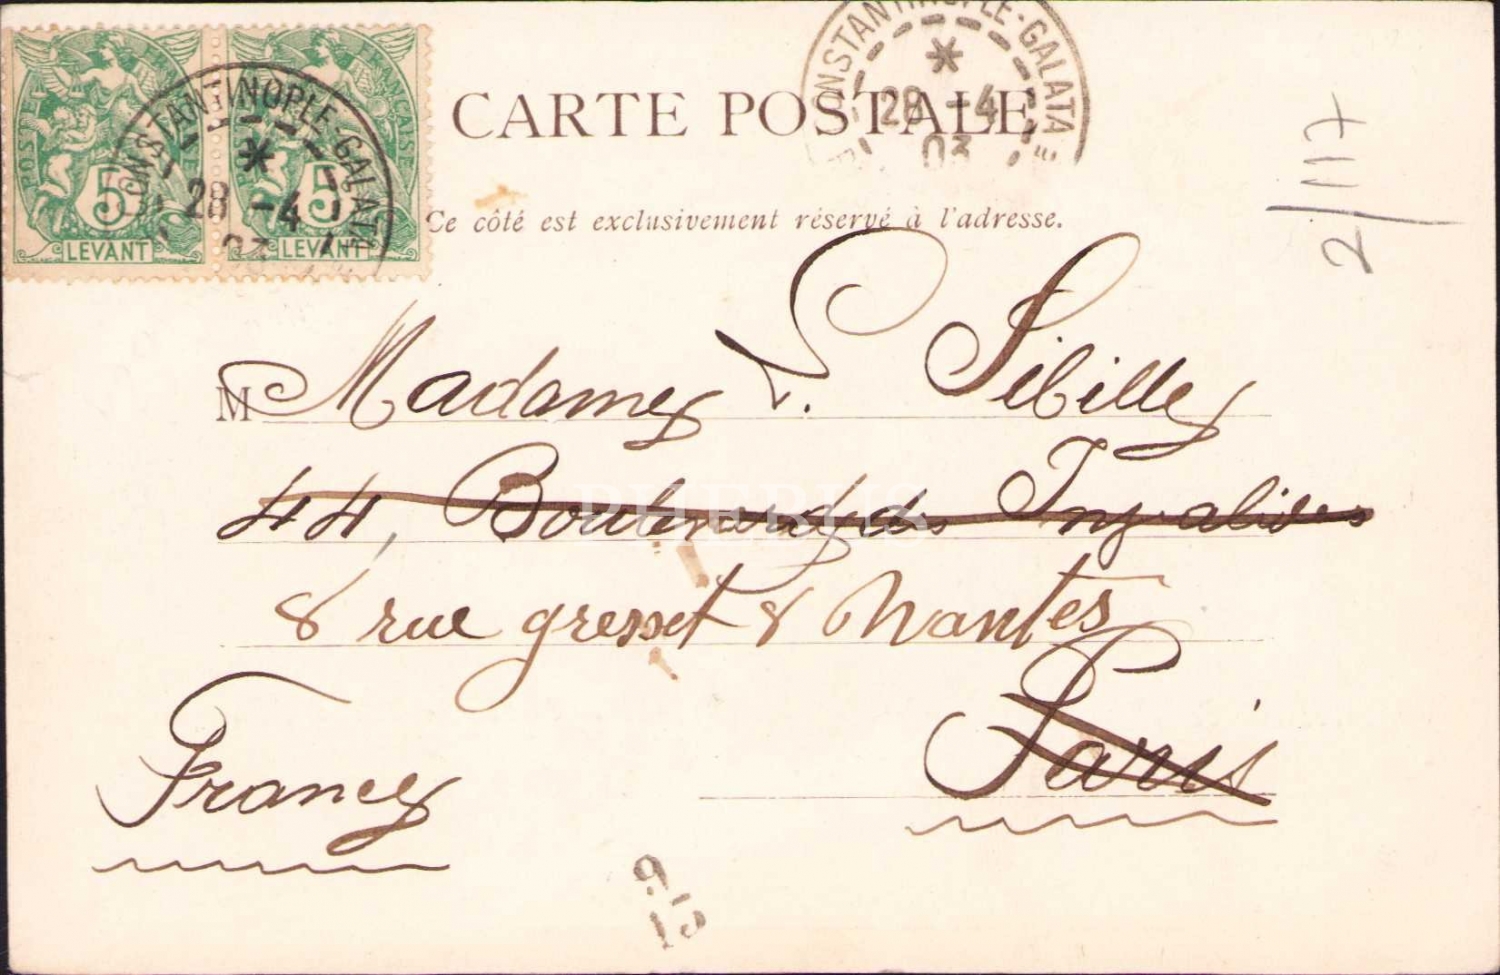 POSTE FRANÇAISE
5
LEVANT
5
LEVANT
CONSTANTINOPLE-GALATA
28 -4
03
CARTE POSTALE
CONSTANTINOPLE-GALATA
28 -4
03
2/117
Ce côté est exclusivement réservé à l'adresse.
M Madame V. Sibille
44, Boulevard des Invalides
8 rue gresset 8 Nantes
Paris
France
PHEBUS